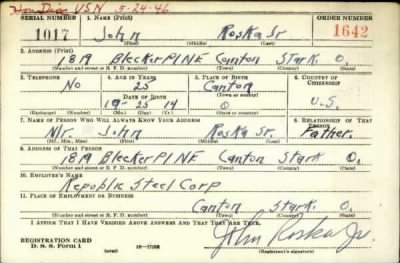 Hon Disc USN 5-24-46
SERIAL NUMBER 1. NAME (Print) ORDER NUMBER
1017 John Roska Sr 1642
(First) (Middle) (Last)
2. ADDRESS (Print)
1819 Bleeker Pl NE Canton Stark O.
(Number and street or R. F. D. number) (Town) (County) (State)
3. TELEPHONE 4. AGE IN YEARS 5. PLACE OF BIRTH 6. COUNTRY OF CITIZENSHIP
No 25 Canton
DATE OF BIRTH (Town or county)
10-25-14 O U.S.
(Mo.) (Day) (Yr.) (State or country)
7. NAME OF PERSON WHO WILL ALWAYS KNOW YOUR ADDRESS 8. RELATIONSHIP OF THAT PERSON
Mr. John Roska Sr. Father.
(Mr., Mrs., Miss) (First) (Middle) (Last)
9. ADDRESS OF THAT PERSON
1819 Bleeker Pl NE Canton Stark O.
(Number and street or R. F. D. number) (Town) (County) (State)
10. EMPLOYER'S NAME
Republic Steel Corp
11. PLACE OF EMPLOYMENT OR BUSINESS
Canton Stark. O.
(Number and street or R. F. D. number) (Town) (County) (State)
I AFFIRM THAT I HAVE VERIFIED ABOVE ANSWERS AND THAT THEY ARE TRUE.
REGISTRATION CARD
D. S. S. Form 1 John Roska Jr.
(Registrant's signature)